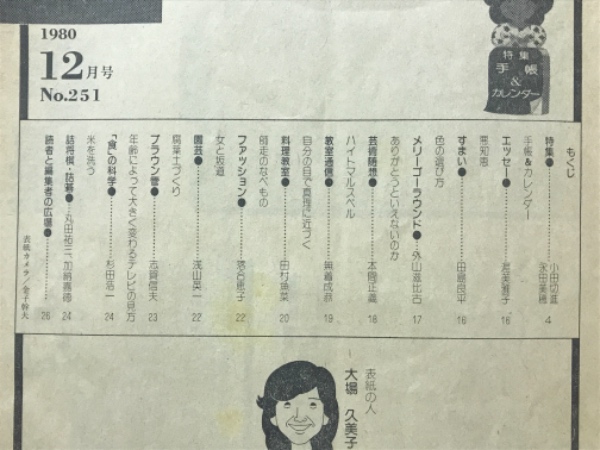 1980
12月号
No.251
特集
手帳
&
カレンダー
もくじ
特集●
小田切進
永田美穂 4
手帳&カレンダー
エッセー● 渥美雅子 16
悪知恵
すまい● 田島良平 16
色の選び方
メリーゴーラウンド● 外山滋比古 17
ありがとうといえないのか
芸術随想● 本間正義 18
ハイトマルスペル
教室通信● 無着成恭 19
自分の目で真理に近づく
料理教室● 田村魚菜 20
師走のなべもの
ファッション● 落合恵子 22
女と坂道
園芸● 浅山英一 22
腐葉土づくり
ブラウン管● 志賀信夫 23
年齢によって大きく変わるテレビの見方
「食」の科学● 杉田浩一 24
米を洗う
詰将棋・詰碁● 丸田祐三、加納嘉徳 24
読者と編集者の広場● 26
表紙カメラ/金子幹夫
表紙の人
大場久美子